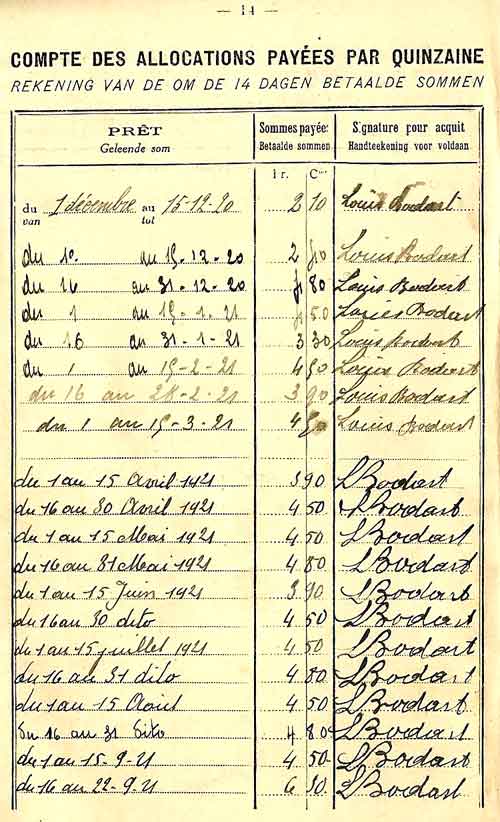 — 14 —
COMPTE DES ALLOCATIONS PAYÉES PAR QUINZAINE
REKENING VAN DE OM DE 14 DAGEN BETAALDE SOMMEN
PRÊT Sommes payée: Signature pour acquit
Geleende som Betaalde sommen Handteekening voor voldaan
Fr. Cmes
du 1 décembre au 15-12-20 2 10 Louis Bodart
van tot
du 1º au 15-12-20 2 Louis Bodart
du 16 au 31-12-20 80 Louis Bodart
du 1 au 15-1-21 50 Louis Bodart
du 16 au 31-1-21 3 30 Louis Bodart
du 1 au 15-2-21 4 50 Louis Bodart
du 16 au 28-2-21 3 90 Louis Bodart
du 1 au 15-3-21 4 Louis Bodart
du 1 au 15 Avril 1921 3 90 LBodart
du 16 au 30 Avril 1921 4 50 LBodart
du 1 au 15 Mai 1921 4 50 LBodart
du 16 au 31 Mai 1921 4 80 LBodart
du 1 au 15 Juin 1921 3 90 LBodart
du 16 au 30 dito 4 50 LBodart
du 1 au 15 juillet 1921 4 50 LBodart
du 16 au 31 dito 4 80 LBodart
du 1 au 15 Aout 4 50 LBodart
Du 16 au 31 Dito 4 80 LBodart
du 1 au 15-9-21 4 50 LBodart
du 16 au 22-9-21 6 LBodart